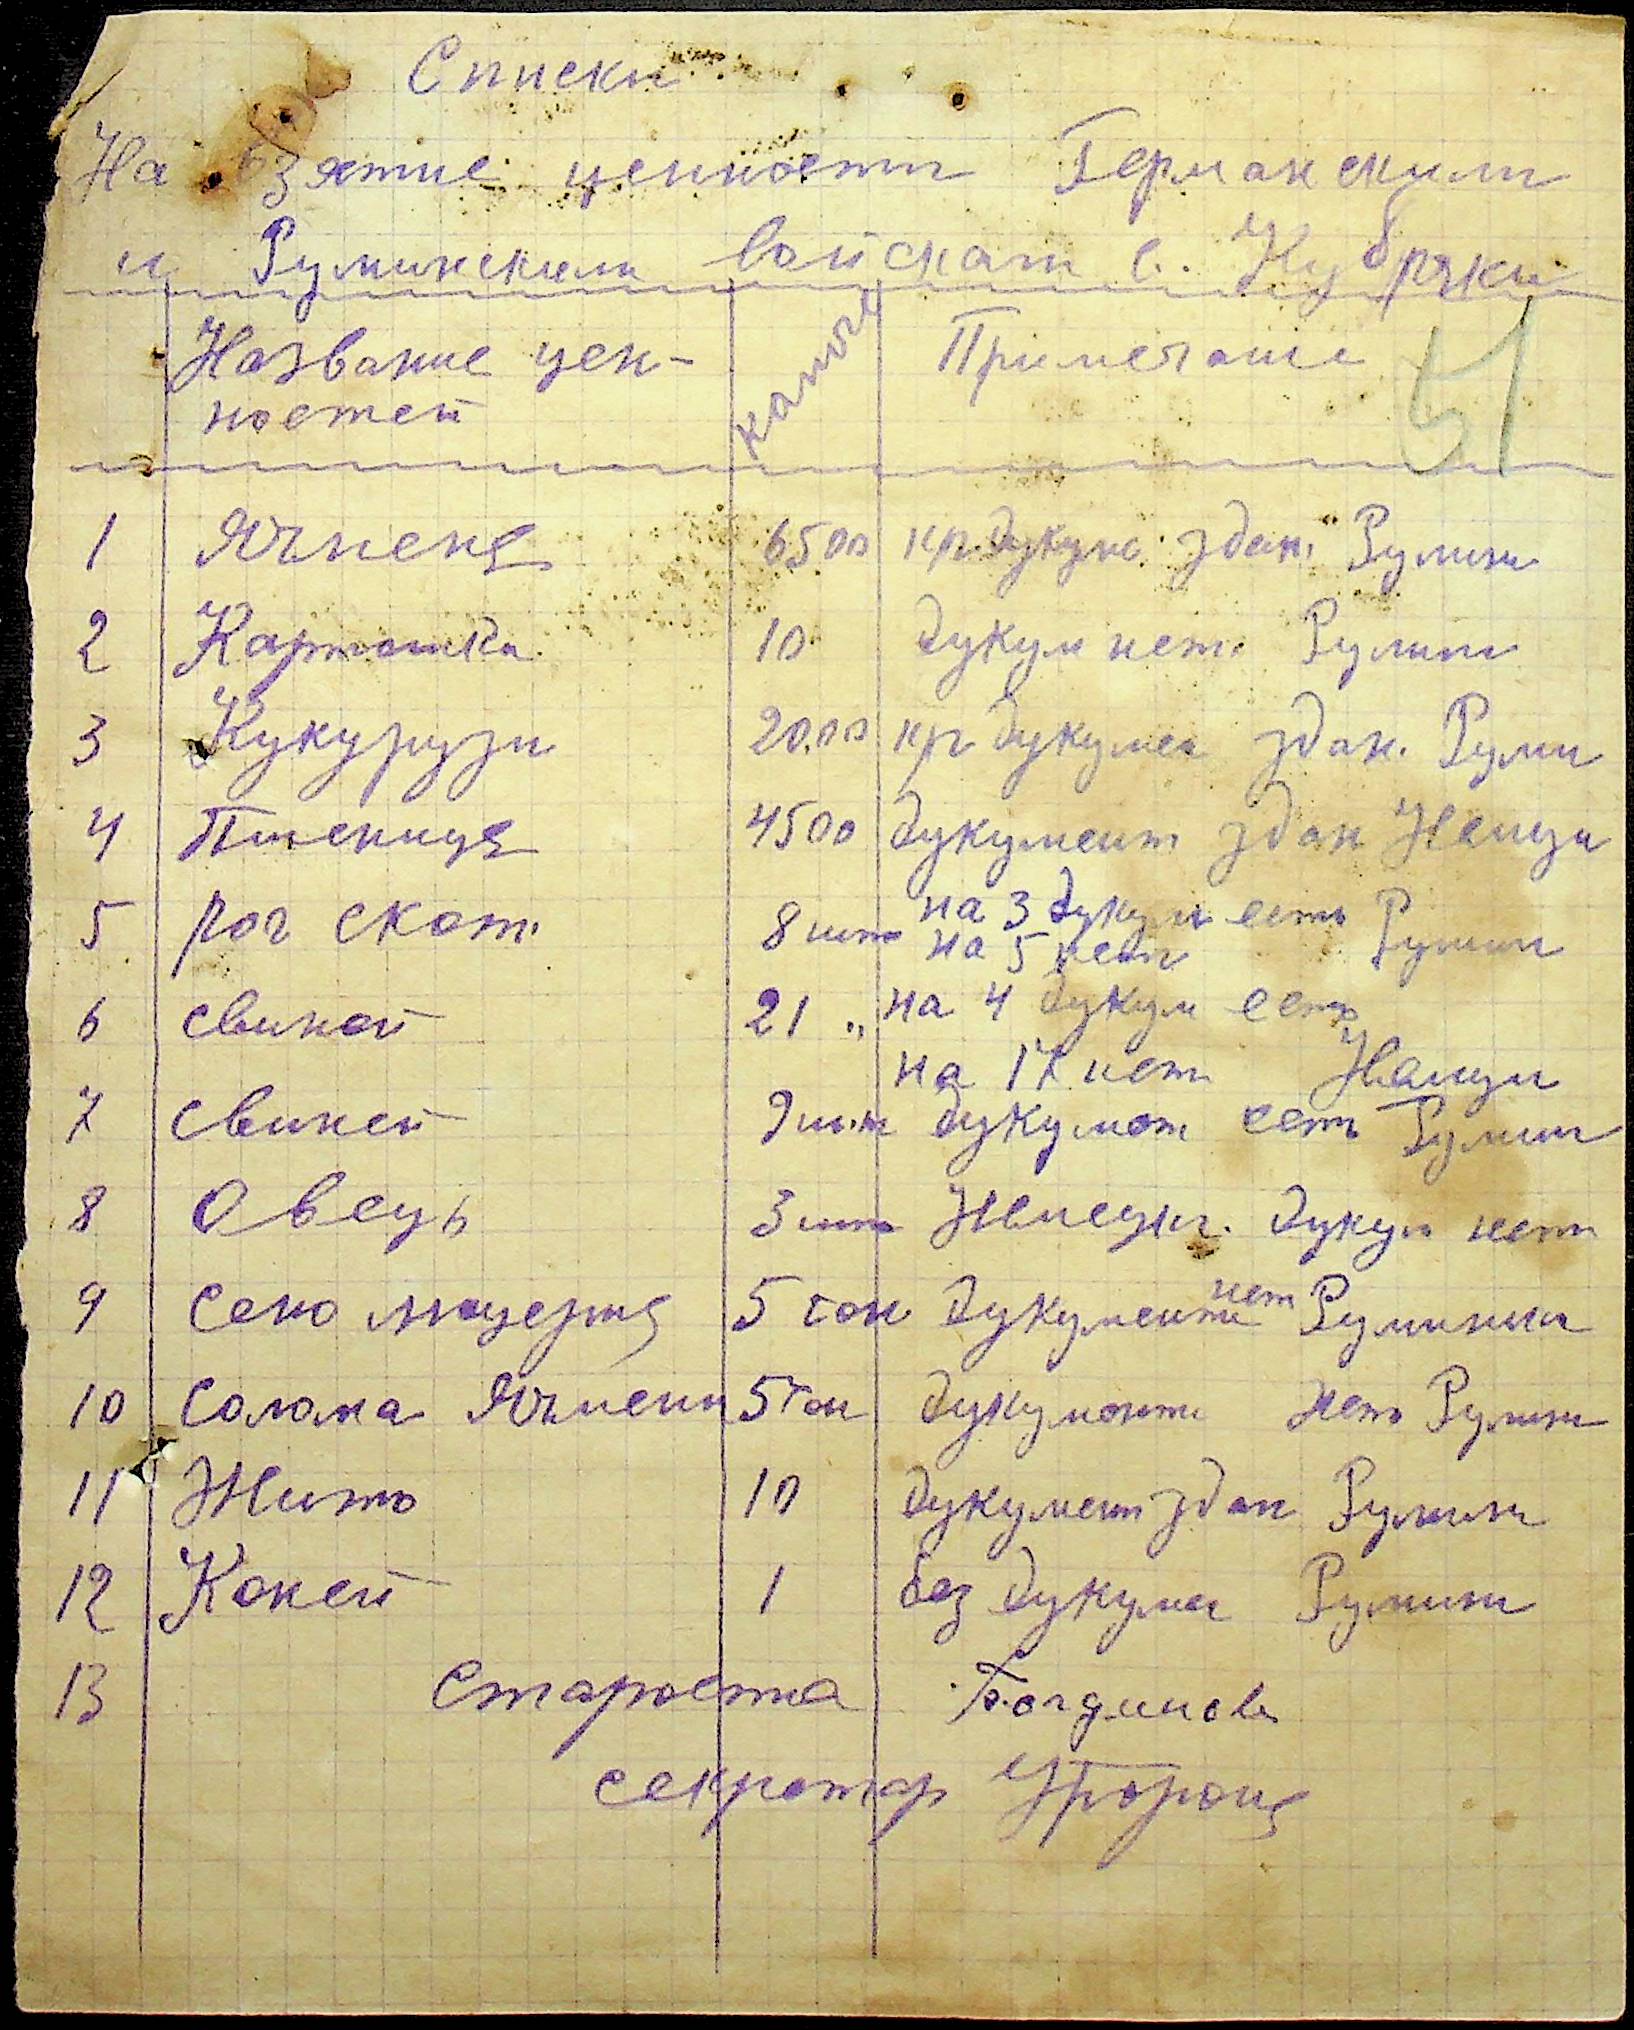 Списки
На взятие ценности Германским
и Румынским войскам с. Кубряки
Название цен-
ностей
Примечание
51
1 Ячменя 6500 кг. дукум. здан. Румын
2 Картошка 10 дукум нет. Румын
3 Кукурузы 20.00 кг дукумен здан. Румы
4 Пшеница 4500 дукумент здан Немцы
5 рог скот. 8 шт на 3 дукум есть Румын
на 5 нет
6 свиней 21 " на 4 дукум есть
на 17 нет Немцы
7 свиней 9 шт дукумет есть Румын
8 Овець 3 шт Немецки. дукум нет
9 Сено 5 тон дукументи нет Румыны
10 Солома Ячмени 5 тон дукументи нет Румын
11 Жито 10 дукумент здан Румын
12 Коней 1 без дукумен Румын
13 Староста
секретар